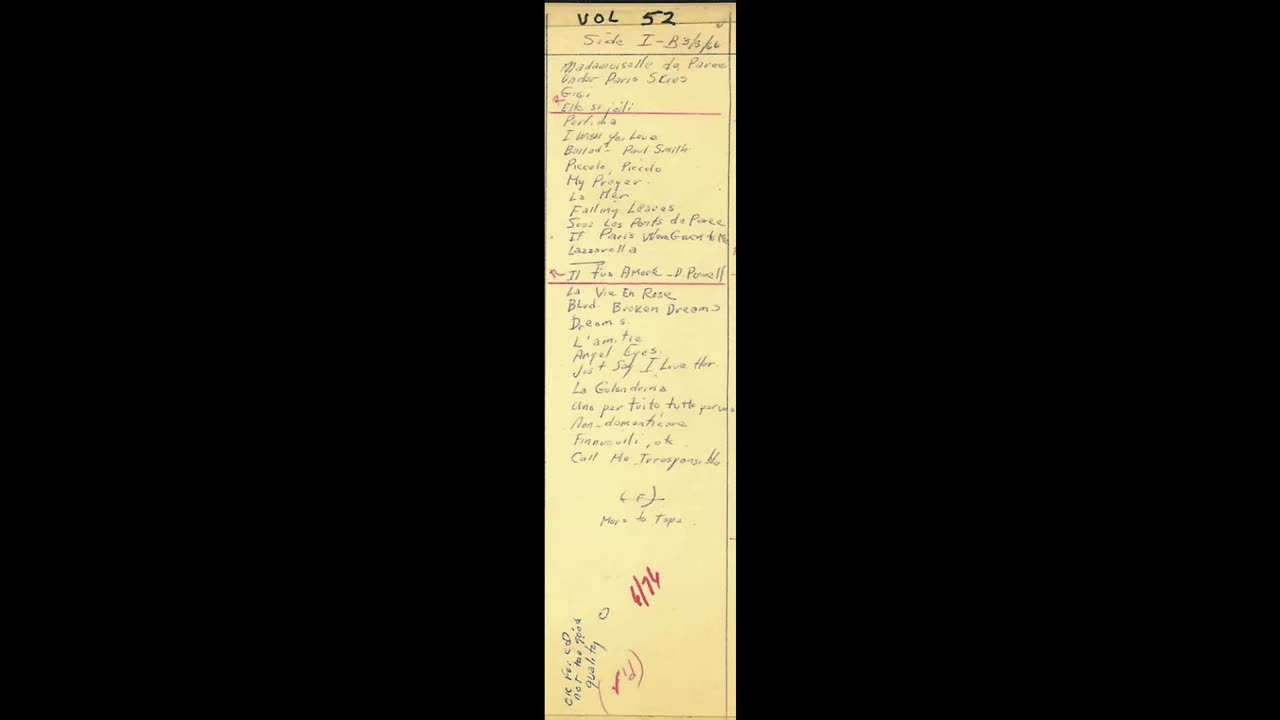 VOL 52
Side I-B 3/3/66
Madamuiselle de Paree
Under Paris Skies
Gigi
Elle si joili
Perfidia
I Wish You Love
Ballad- Paul Smith
Piccolo, Piccolo
My Prayer.
La Mer
Falling Leaves
Sous Les Ponts de Paree
If Paris Were Given to Me
Lazzarella
Il Fus Amore - D. Powell
La Vie En Rose
Blvd. Broken Dreams
Dreams.
L'amitie
Angel Eyes.
Just Say I Love Her.
La Golondrina
Uno per tuito, tutto per uno
Non-domenticare
Finnuculi, etc
Call Me Irresponsible
(F)
More to Tape.
6/74
OK For CD,
not too good
quality